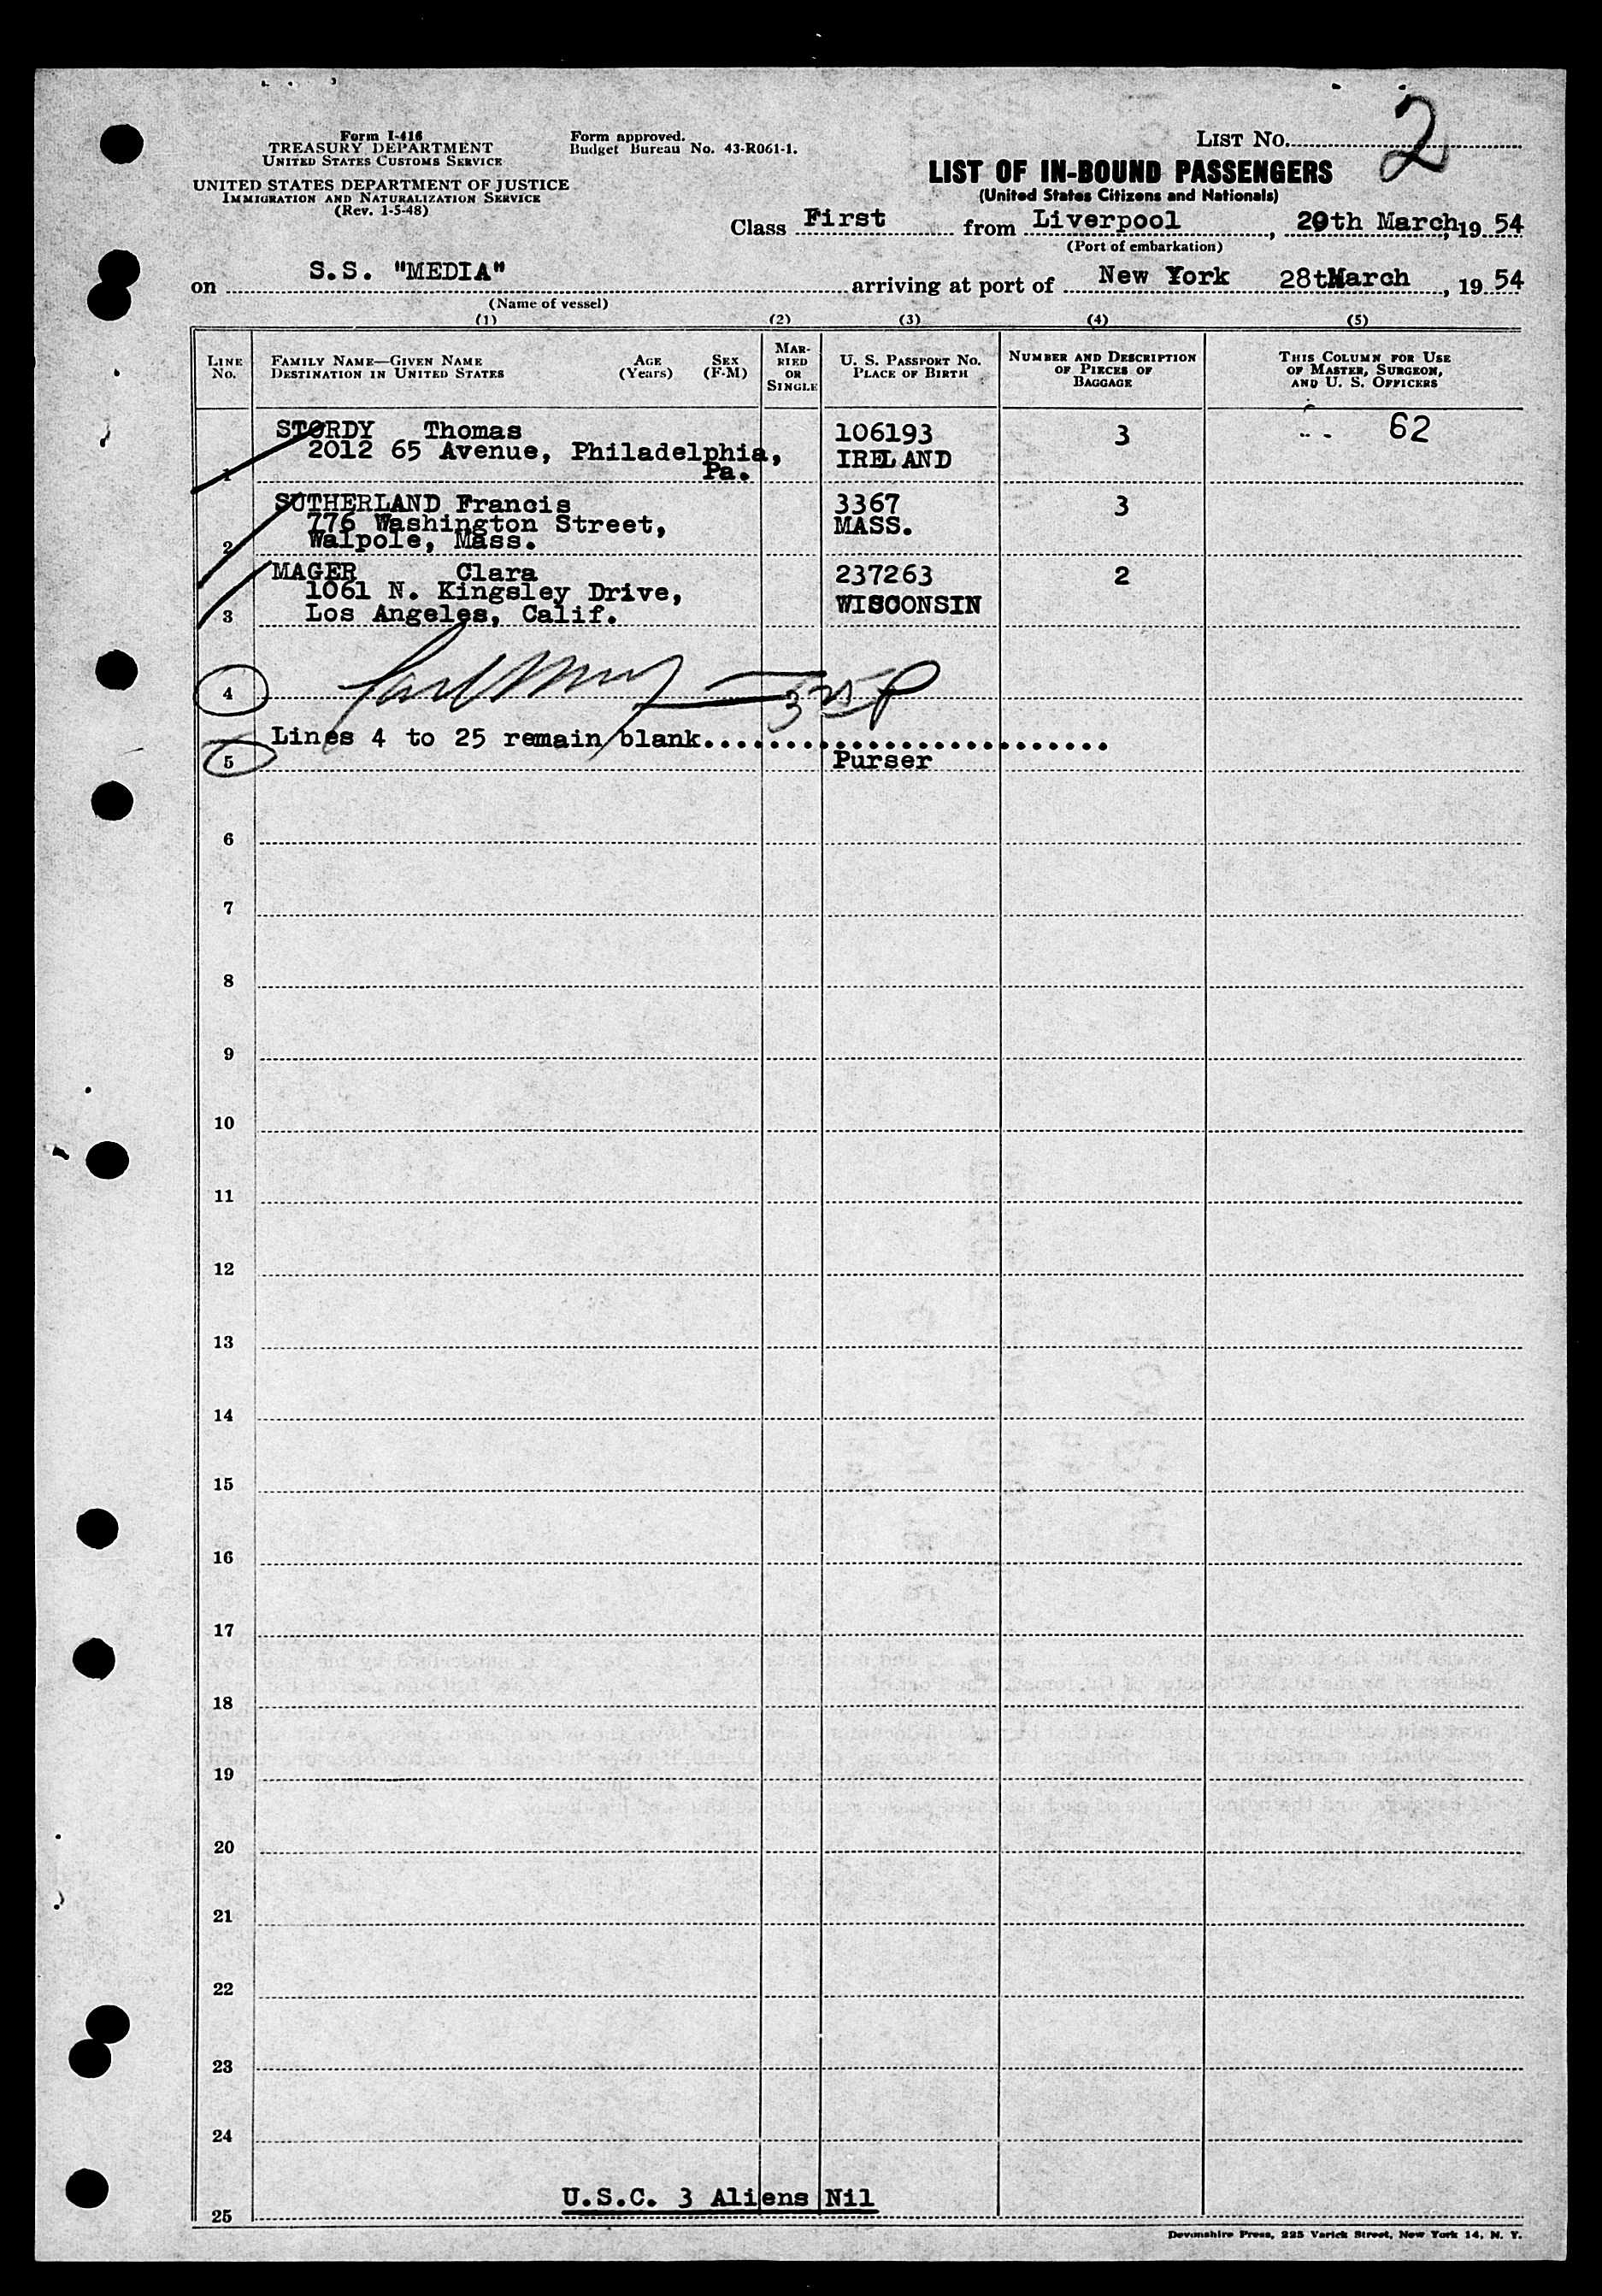 Form I-416
TREASURY DEPARTMENT
UNITED STATES CUSTOMS SERVICE
UNITED STATES DEPARTMENT OF JUSTICE
IMMIGRATION AND NATURALIZATION SERVICE
(Rev. 1-5-48)
Form approved.
Budget Bureau No. 43-R061-1.
LIST NO. 2
LIST OF IN-BOUND PASSENGERS
(United States Citizens and Nationals)
Class First from Liverpool, 20th March, 19 54
(Port of embarkation)
on S.S. "MEDIA" arriving at port of New York 28tMarch, 19 54
(Name of vessel)
(1) (2) (3) (4) (5)
LINE NO.
FAMILY NAME—GIVEN NAME
DESTINATION IN UNITED STATES
AGE (Years)
SEX (F-M)
MARRIED OR SINGLE
U. S. PASSPORT NO.
PLACE OF BIRTH
NUMBER AND DESCRIPTION
OF PIECES OF
BAGGAGE
THIS COLUMN FOR USE
OF MASTER, SURGEON,
AND U. S. OFFICERS
STORDY Thomas 106193 3 62
2012 65 Avenue, Philadelphia, IRELAND
1 Pa.
SUTHERLAND Francis 3367 3
776 Washington Street, MASS.
2 Walpole, Mass.
MAGER Clara 237263 2
1061 N. Kingsley Drive, WISCONSIN
3 Los Angeles, Calif.
4
Lines 4 to 25 remain blank.........................
5 Purser
6
7
8
9
10
11
12
13
14
15
16
17
18
19
20
21
22
23
24
U.S.C. 3 Aliens Nil
25
Devonshire Press, 225 Varick Street, New York 14, N. Y.